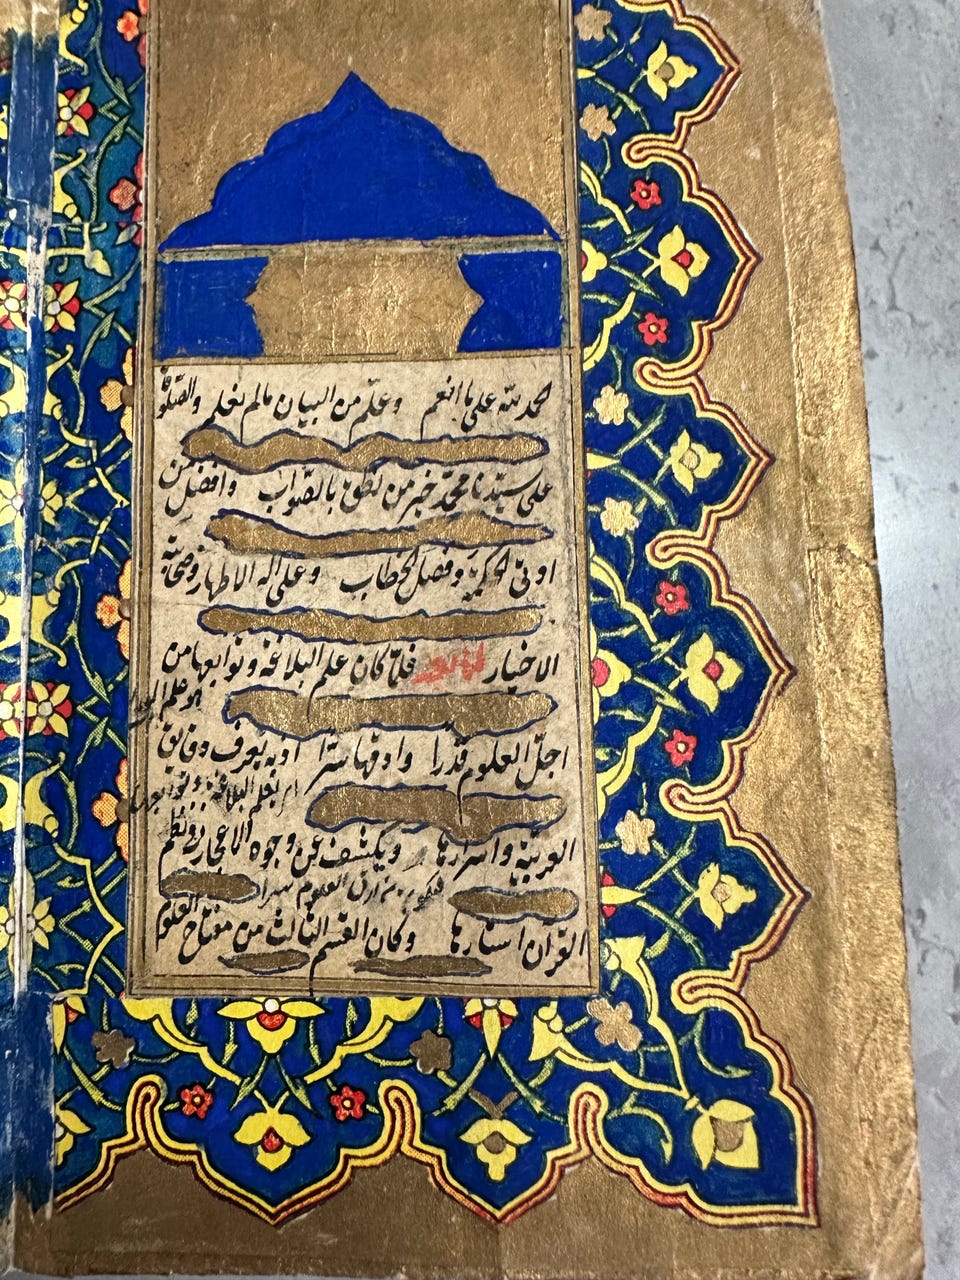 الحمد لله على ما انعم وعلم من البيان مالم نعلم والصلوة
على سيدنا محمد خير من نطق بالصواب وافضل من
اوتى الحكمة وفصل الخطاب وعلى اله الاطهار وصحابته
الاخيار اما بعد فلما كان علم البلاغة وتوابعها من
هو علم
اجل العلوم قدرا وادقها سرا اذ به يعرف دقايق
اى بعلم البلاغة وتوابعها
العربية واسرارها ويكشف عن وجوه الاعجاز فى نظم
فيكون من ادق العلوم سرا
القران استارها وكان القسم الثالث من مفتاح العلوم